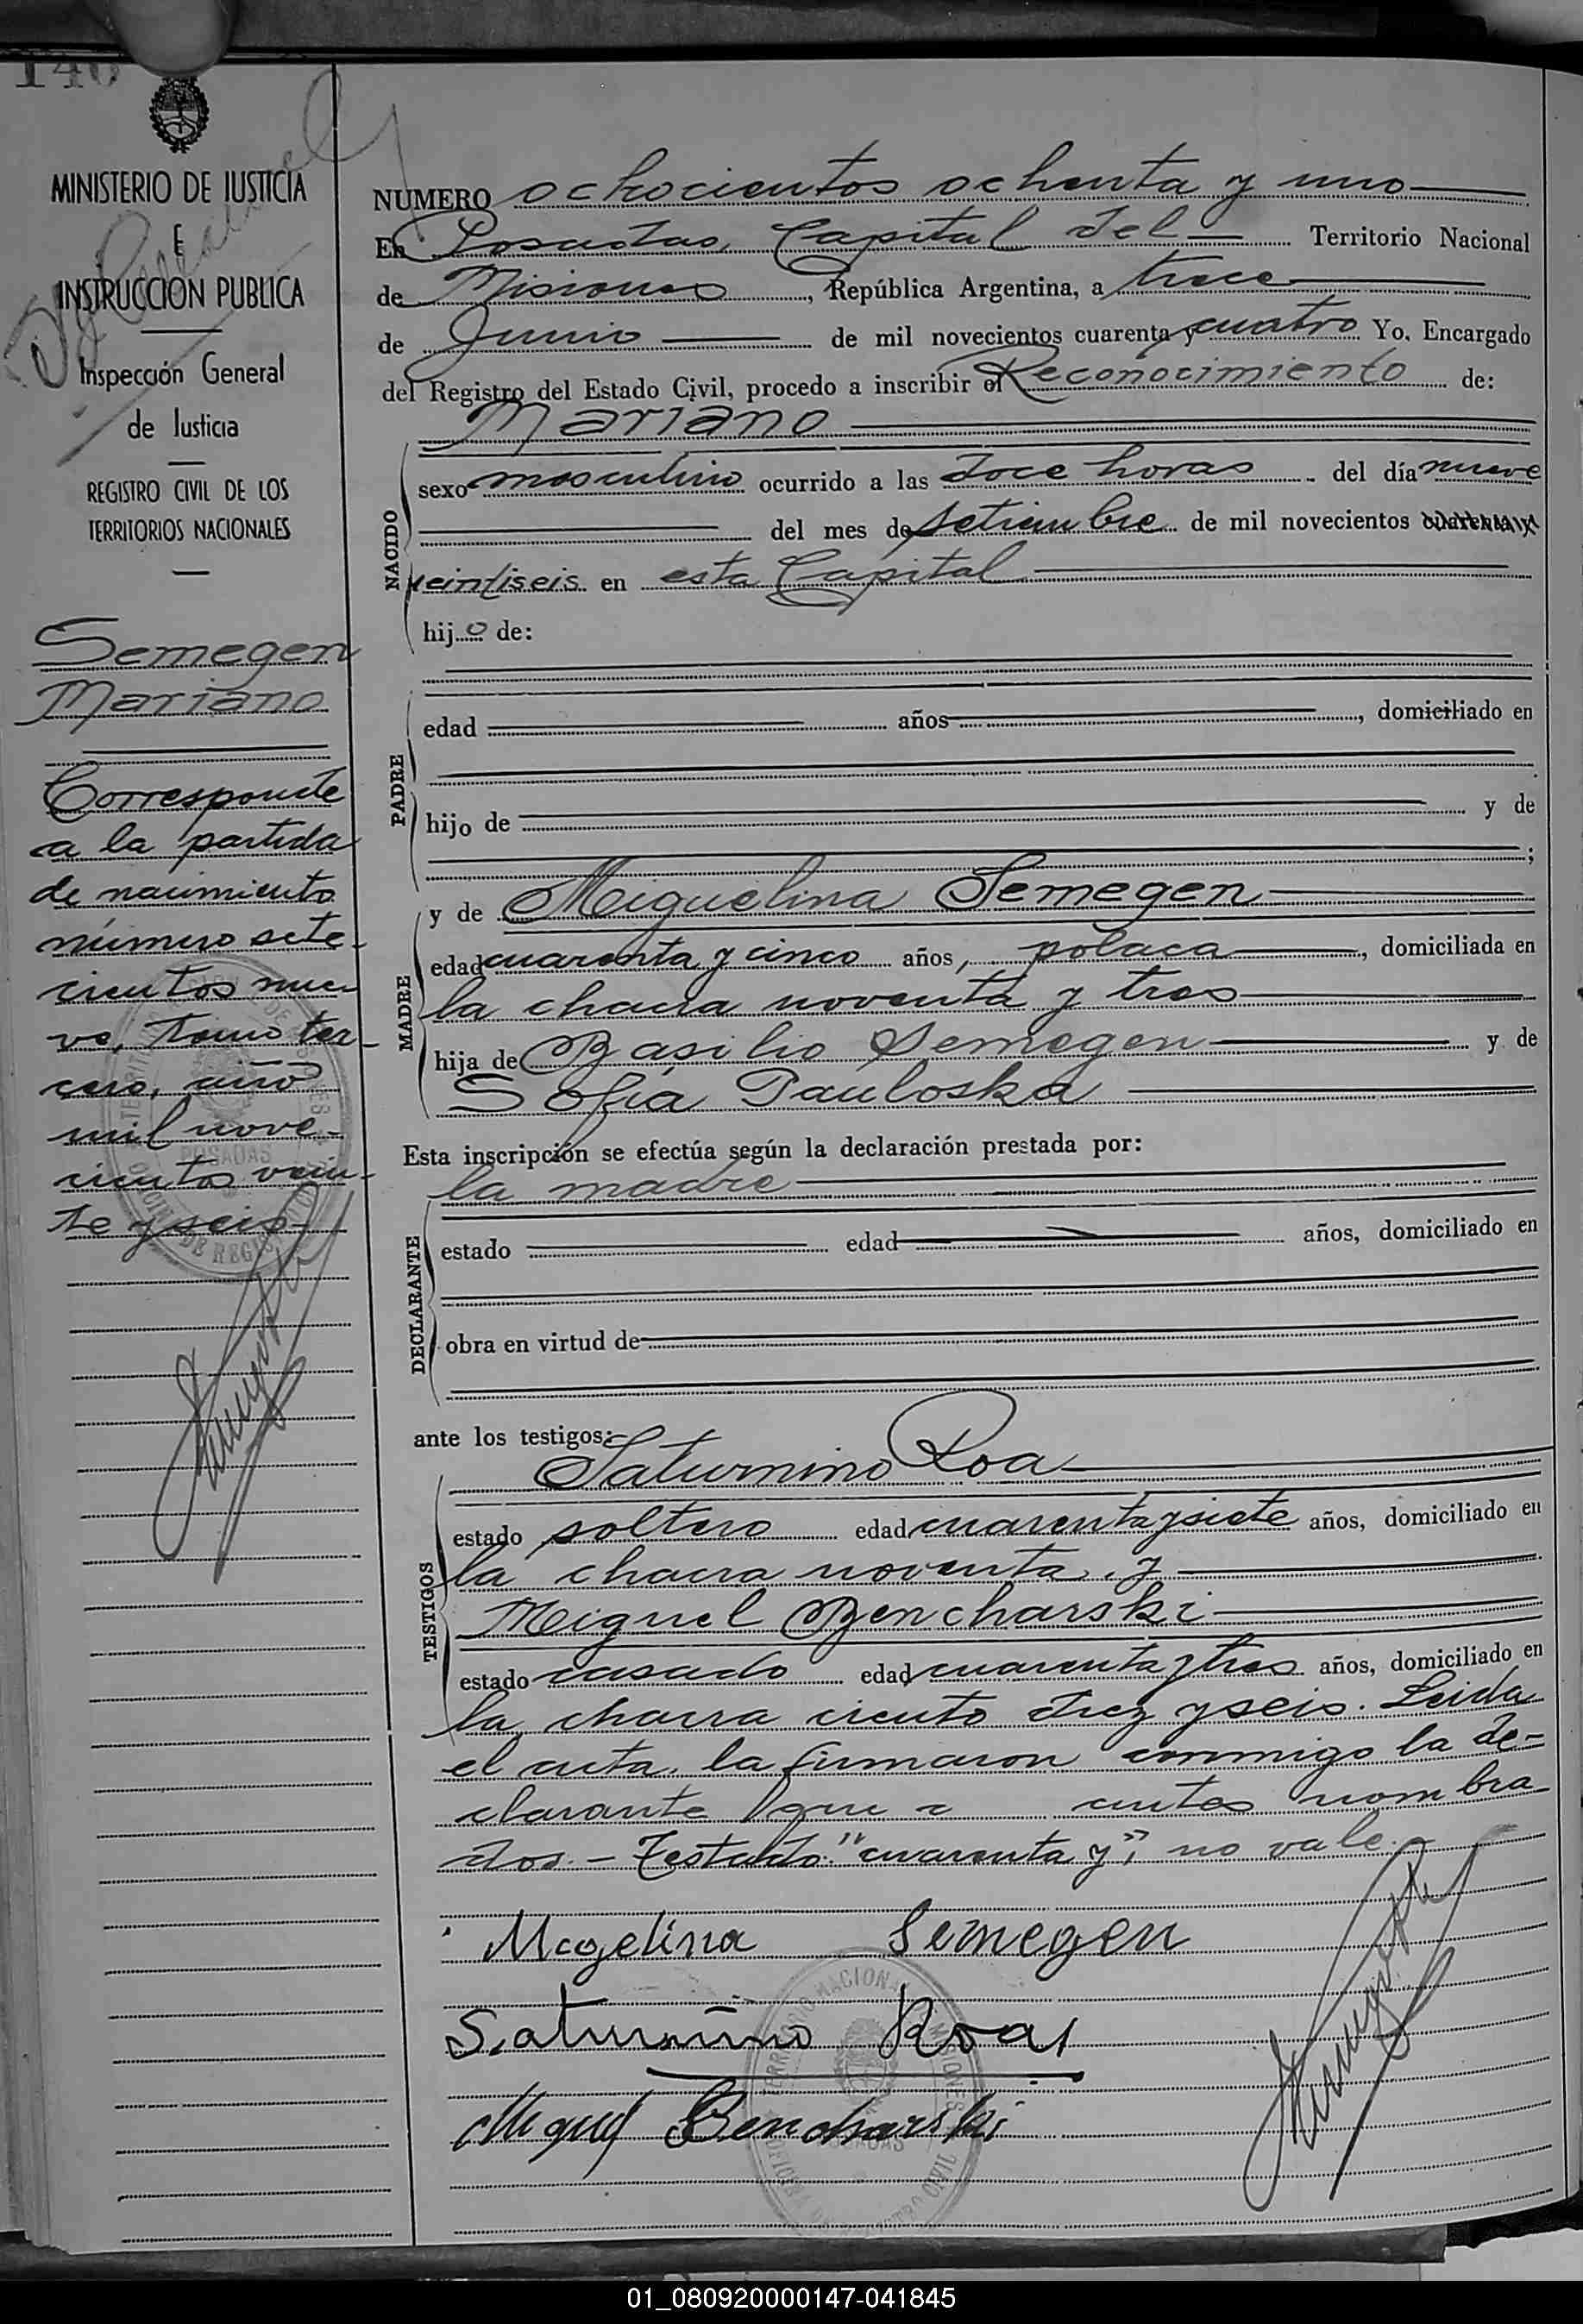 140
MINISTERIO DE JUSTICIA
E
INSTRUCCION PUBLICA
Inspección General
de Justicia
REGISTRO CIVIL DE LOS
TERRITORIOS NACIONALES
Semegen
Mariano
Corresponde
a la partida
de nacimiento
número sete-
cientos nue-
ve, Tomo ter-
cero, año
mil nove-
cientos vein-
te y seis
NUMERO ochocientos ochenta y uno
En Posadas, Capital del Territorio Nacional
de Misiones, República Argentina, a trece
de Junio de mil novecientos cuarenta y cuatro Yo, Encargado
del Registro del Estado Civil, procedo a inscribir el Reconocimiento de:
Mariano
NACIDO
sexo masculino ocurrido a las doce horas del día nueve
del mes de setiembre de mil novecientos cuarenta y
veintiseis en esta Capital
hijo de:
PADRE
edad años, domiciliado en
hijo de y de
;
MADRE
y de Miguelina Semegen
edad cuarenta y cinco años, polaca, domiciliada en
la chacra noventa y tres
hija de Basilio Semegen y de
Sofía Pauloska
Esta inscripción se efectúa según la declaración prestada por:
la madre
DECLARANTE
estado edad años, domiciliado en
obra en virtud de
ante los testigos:
Saturnino Roa
TESTIGOS
estado soltero edad cuarenta y siete años, domiciliado en
la chacra noventa, y
Miguel Bencharski
estado casado edad cuarenta y tres años, domiciliado en
la chacra ciento diez y seis. Leida
el acta, la firmaron conmigo la de-
clarante antes nombra-
dos.- Testado: "cuarenta y"; no vale.
Magelina Semegen
Saturnino Roas
Miguel Bencharski
POSADAS
01_080920000147-041845